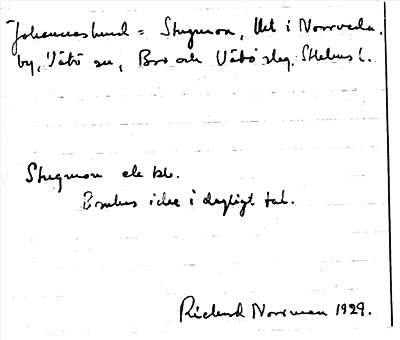 Johanneslund = Stugmon, lht i Norrveda
by, Vätö sn, Bro och Vätö slg. Sthlms l.
Stugmon ele bl.
Brukas icke i dagligt tal.
Richard Norrman 1929.